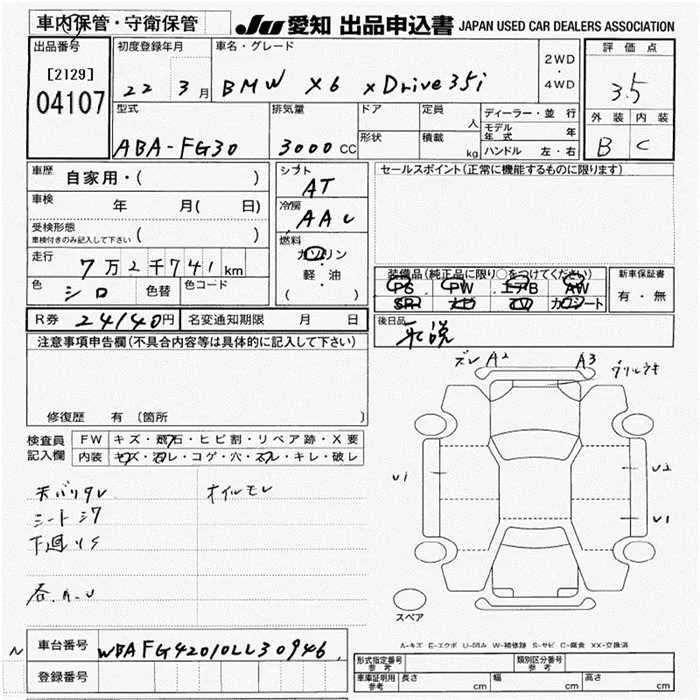 車内保管・守衛保管
JU 愛知 出品申込書 JAPAN USED CAR DEALERS ASSOCIATION
出品番号
[2129]
04107
初度登録年月
22 3月
車名・グレード
BMW X6 xDrive35i
2WD
・
4WD
評価点
3.5
外装 内装
B C
型式
ABA-FG30
排気量
3000cc
ドア
形状
定員
人
積載
kg
ディーラー・並行
モデル年式 年
ハンドル 左・右
車歴 自家用・( )
車検 年 月( 日)
受検形態
車検付きのみ記入して下さい ( )
走行 7万2千741km
色 シロ 色替 色コード
シフト
AT
冷房
AAC
燃料
ガソリン
・
軽・油
( )
セールスポイント(正常に機能するものに限ります)
装備品(純正品に限り○をつけてください)
PS PW エアB AW
SR ナビ TV カワシート
新車保証書
有・無
後日品
取説
R券 24140円 名変通知期限 月 日
注意事項申告欄(不具合内容等は具体的に記入して下さい)
修復歴 有 〔箇所 〕
検査員
記入欄
FW キズ・飛石・ヒビ割・リペア跡・X要
内装 キズ・汚レ・コゲ・穴・スレ・キレ・破レ
天バリタレ
シートシワ
下廻りサ
オイルモレ
ズレ A2 A3 グリルキズ
U1
U2
U1
スペア
A-キズ E-エクボ U-凹み W-補修跡 S-サビ C-腐食 XX-交換済
N
車台番号 WBAFG42010LL30946
登録番号
形式指定番号
参考
類別区分番号
参考
車庫証明用
参考
長さ cm 幅 cm 高さ cm